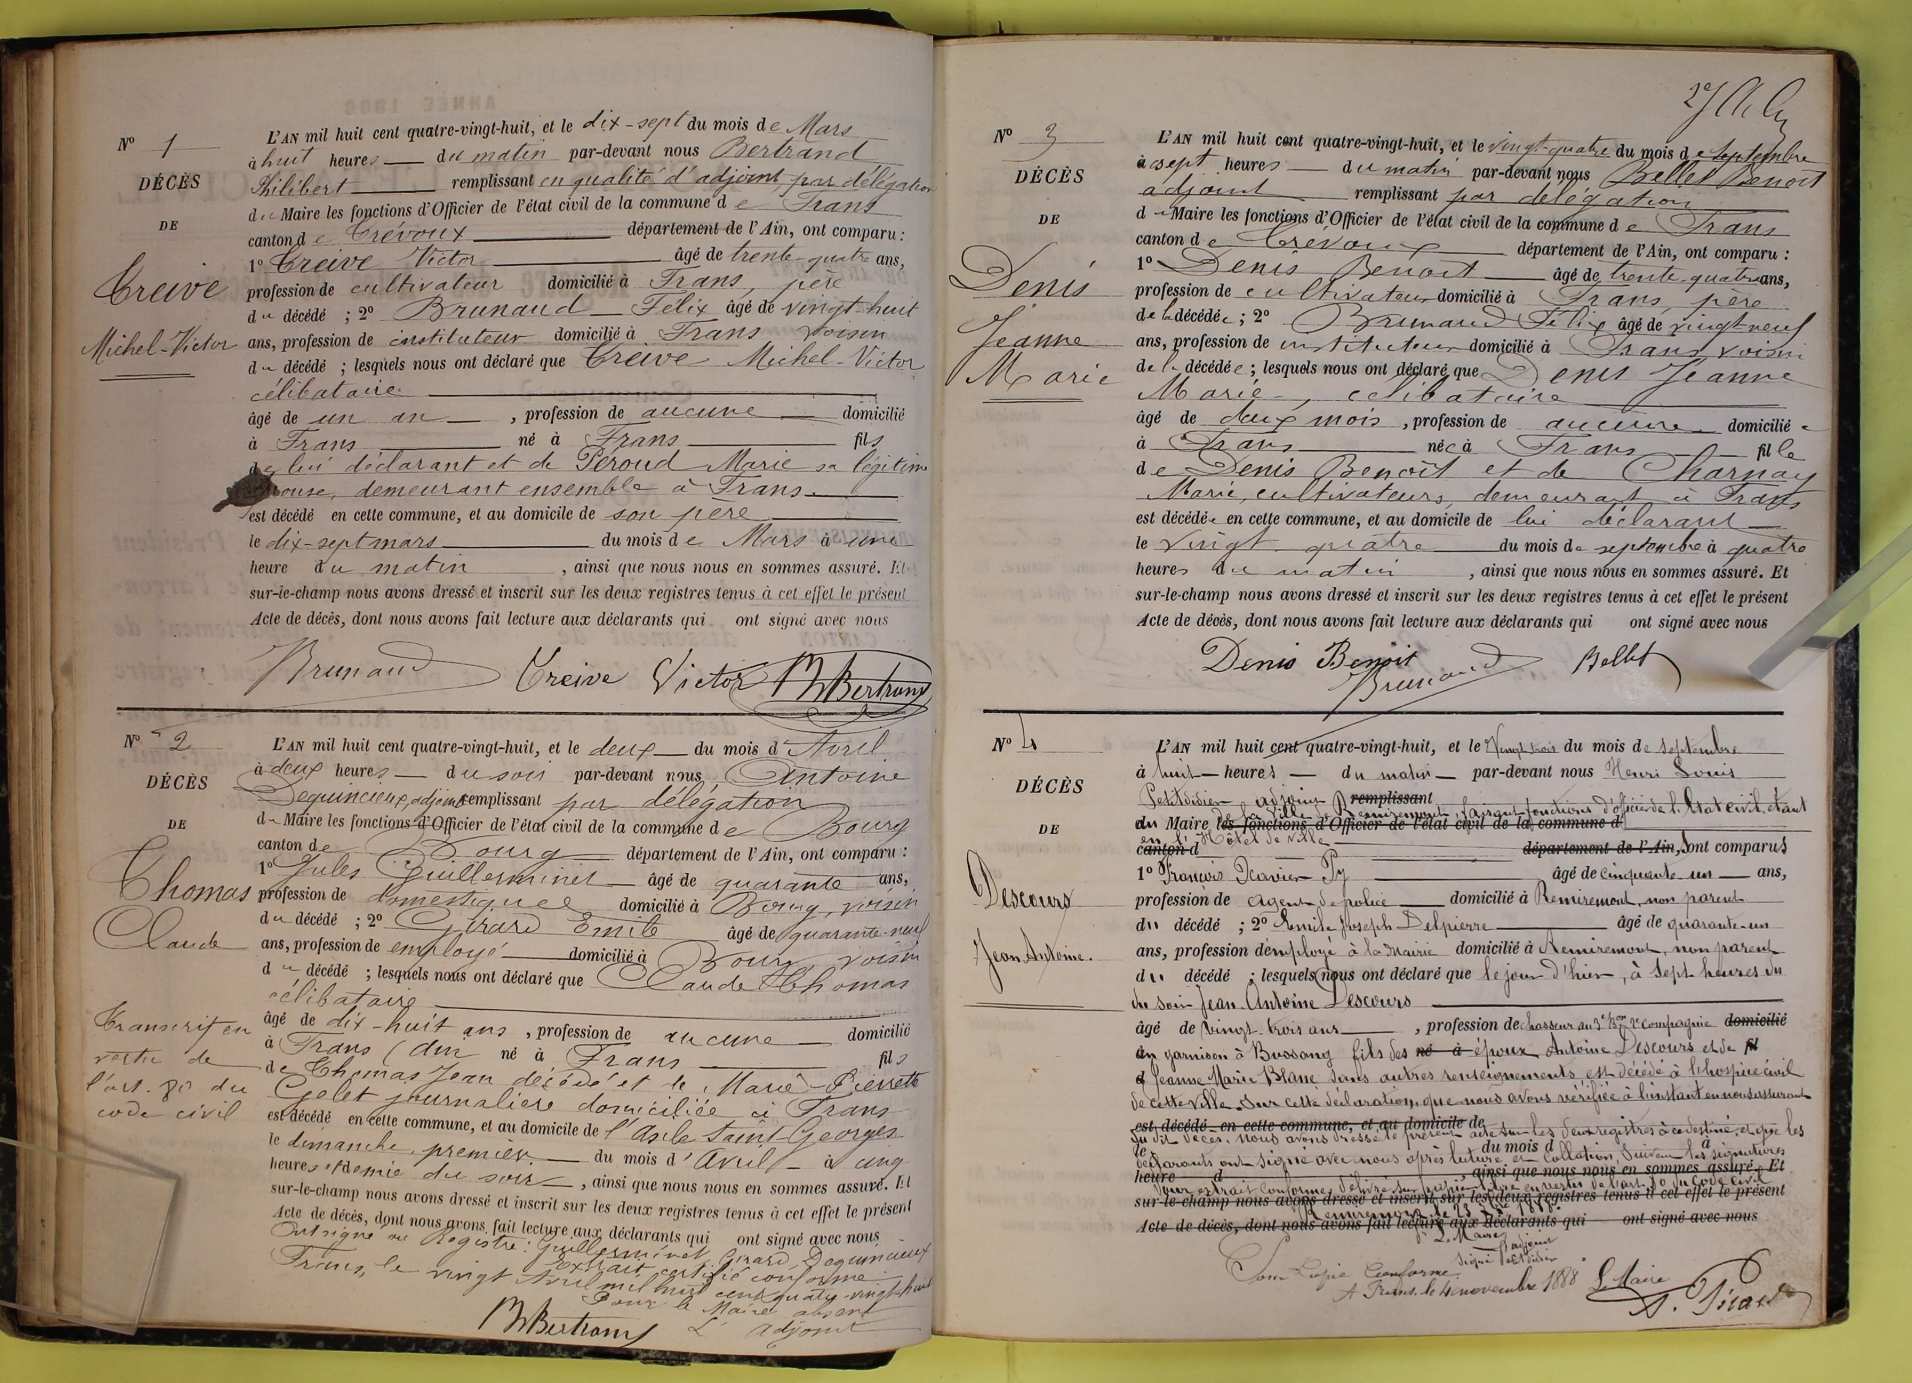 N° 1
DÉCÈS
DE
Creive
Michel-Victor
L'AN mil huit cent quatre-vingt-huit, et le dix-sept du mois de Mars
à huit heures du matin par-devant nous Bertrand
Philibert remplissant en qualité d'adjoint, par délégation
du Maire les fonctions d'Officier de l'état civil de la commune de Frans
canton de Trévoux département de l'Ain, ont comparu :
1° Creive Victor âgé de trente-quatre ans,
profession de cultivateur domicilié à Frans, père
du décédé ; 2° Brunaud Félix âgé de vingt-huit
ans, profession de instituteur domicilié à Frans voisin
du décédé ; lesquels nous ont déclaré que Creive Michel-Victor
célibataire
âgé de un an , profession de aucune domicilié
à Frans né à Frans fils
de lui déclarant et de Péroud Marie sa légitime
épouse, demeurant ensemble à Frans.
est décédé en cette commune, et au domicile de son père
le dix-sept mars du mois de Mars à une
heure du matin , ainsi que nous nous en sommes assuré. Et
sur-le-champ nous avons dressé et inscrit sur les deux registres tenus à cet effet le présent
Acte de décès, dont nous avons fait lecture aux déclarants qui ont signé avec nous
Brunaud Creive Victor Bertrand
N° 2
DÉCÈS
DE
Thomas
Claude
Transcrit en
vertu de
l'art. 80 du
code civil
L'AN mil huit cent quatre-vingt-huit, et le deux du mois d'Avril
à deux heures du soir par-devant nous, Antoine
Dequincieux, adjoint remplissant par délégation
du Maire les fonctions d'Officier de l'état civil de la commune de Bourg
canton de Bourg département de l'Ain, ont comparu :
1° Jules Guillerminet âgé de quarante ans,
profession de domestique domicilié à Bourg, voisin
du décédé ; 2° Girard Emile âgé de quarante-neuf
ans, profession de employé domicilié à Bourg, voisin
du décédé ; lesquels nous ont déclaré que Claude Thomas
célibataire
âgé de dix-huit ans , profession de aucune domicilié
à Frans (Ain né à Frans fils
de Thomas Jean décédé et de Marie-Pierrette
Gelet journalière domiciliée à Frans
est décédé en cette commune, et au domicile de l'Asile Saint-Georges
le dimanche, premier du mois d'Avril à cinq
heures et demie du soir , ainsi que nous nous en sommes assuré. Et
sur-le-champ nous avons dressé et inscrit sur les deux registres tenus à cet effet le présent
Acte de décès, dont nous avons fait lecture aux déclarants qui ont signé avec nous
Ont signé au Registre : Guillerminet, Girard, Dequincieux
Extrait certifié conforme :
Frans, le vingt Avril mil huit cent quatre-vingt-huit
Pour le Maire absent
L'adjoint
Bertrand
N° 3
DÉCÈS
DE
Denis
Jeanne
Marie
L'AN mil huit cent quatre-vingt-huit, et le vingt-quatre du mois de septembre
à sept heures du matin par-devant nous Bellet Benoît
adjoint remplissant par délégation
du Maire les fonctions d'Officier de l'état civil de la commune de Frans
canton de Trévoux département de l'Ain, ont comparu :
1° Denis Benoit âgé de trente quatre ans,
profession de cultivateur domicilié à Frans, père
de la décédée ; 2° Brunaud Félix âgé de vingt-neuf
ans, profession de instituteur domicilié à Frans, voisin
de la décédée ; lesquels nous ont déclaré que Denis Jeanne
Marie, célibataire
âgé de deux mois , profession de aucune domiciliée
à Frans née à Frans fille
de Denis Benoît et de Charnay
Marie, cultivateurs, demeurant à Frans
est décédée en cette commune, et au domicile de lui déclarant
le vingt quatre du mois de septembre à quatre
heures du matin , ainsi que nous nous en sommes assuré. Et
sur-le-champ nous avons dressé et inscrit sur les deux registres tenus à cet effet le présent
Acte de décès, dont nous avons fait lecture aux déclarants qui ont signé avec nous
Denis Benoit Brunaud Bellet
N° 4
DÉCÈS
DE
Descours
Jean Antoine.
L'AN mil huit cent quatre-vingt-huit, et le Vingt trois du mois de septembre
à huit heures du matin par-devant nous Henri Louis
Petitdidier, adjoint remplissant
de la ville de Remiremont, faisant fonctions d'officier de l'Etat civil, étant
du Maire les fonctions d'Officier de l'état civil de la commune d
en l'Hôtel de Ville
canton d département de l'Ain, sont comparus
1° François Xavier Py âgé de cinquante un ans,
profession de agent de police domicilié à Remiremont, non parent
du décédé ; 2° Emile Joseph Delpierre âgé de quarante-un
ans, profession d'employé à la mairie domicilié à Remiremont, non parent
du décédé ; lesquels nous ont déclaré que le jour d'hier, à sept heures du
du soir Jean-Antoine Descours
âgé de vingt-trois ans , profession de chasseur au 3e Bon 2e compagnie domicilié
en garnison à Bussang fils des né à époux Antoine Descours et de fil
d Jeanne Marie Blanc sans autres renseignements est décédé à l'hospice civil
de cette ville. Sur cette déclaration, que nous avons vérifiée à l'instant en nous assurant
est décédé en cette commune, et au domicile de
du dit décès. Nous avons dressé le présent acte sur les deux registres à ce destinés, et que les
le du mois d à
déclarants ont signé avec nous après lecture et collation. Suivent les signatures
heure d , ainsi que nous nous en sommes assuré. Et
Pour extrait conforme, délivré sur papier libre en vertu de l'art. 80 du Code civil
sur-le-champ nous avons dressé et inscrit sur les deux registres tenus à cet effet le présent
Remiremont, le 25 7bre 1888.
Acte de décès, dont nous avons fait lecture aux déclarants qui ont signé avec nous
Pr le Maire
L'adjoint
Signé Petitdidier
Pour Copie Conforme.
A Frans, le 4 novembre 1888 Le Maire